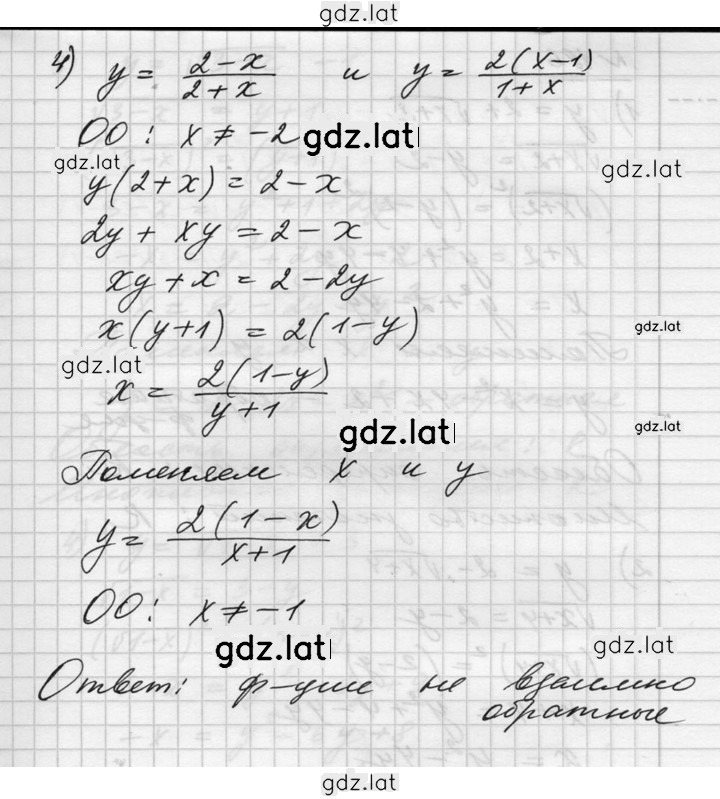 gdz.lat
4) y = (2-x)/(2+x) и y = 2(x-1)/(1+x)
ОО: x ≠ -2 gdz.lat
gdz.lat
gdz.lat
y(2+x) = 2-x
2y + xy = 2-x
xy + x = 2-2y
x(y+1) = 2(1-y)
gdz.lat
gdz.lat
x = 2(1-y)/(y+1)
gdz.lat
gdz.lat
Поменяем x и y
y = 2(1-x)/(x+1)
ОО: x ≠ -1
gdz.lat
gdz.lat
Ответ: ф-ции не взаимно
обратные
gdz.lat